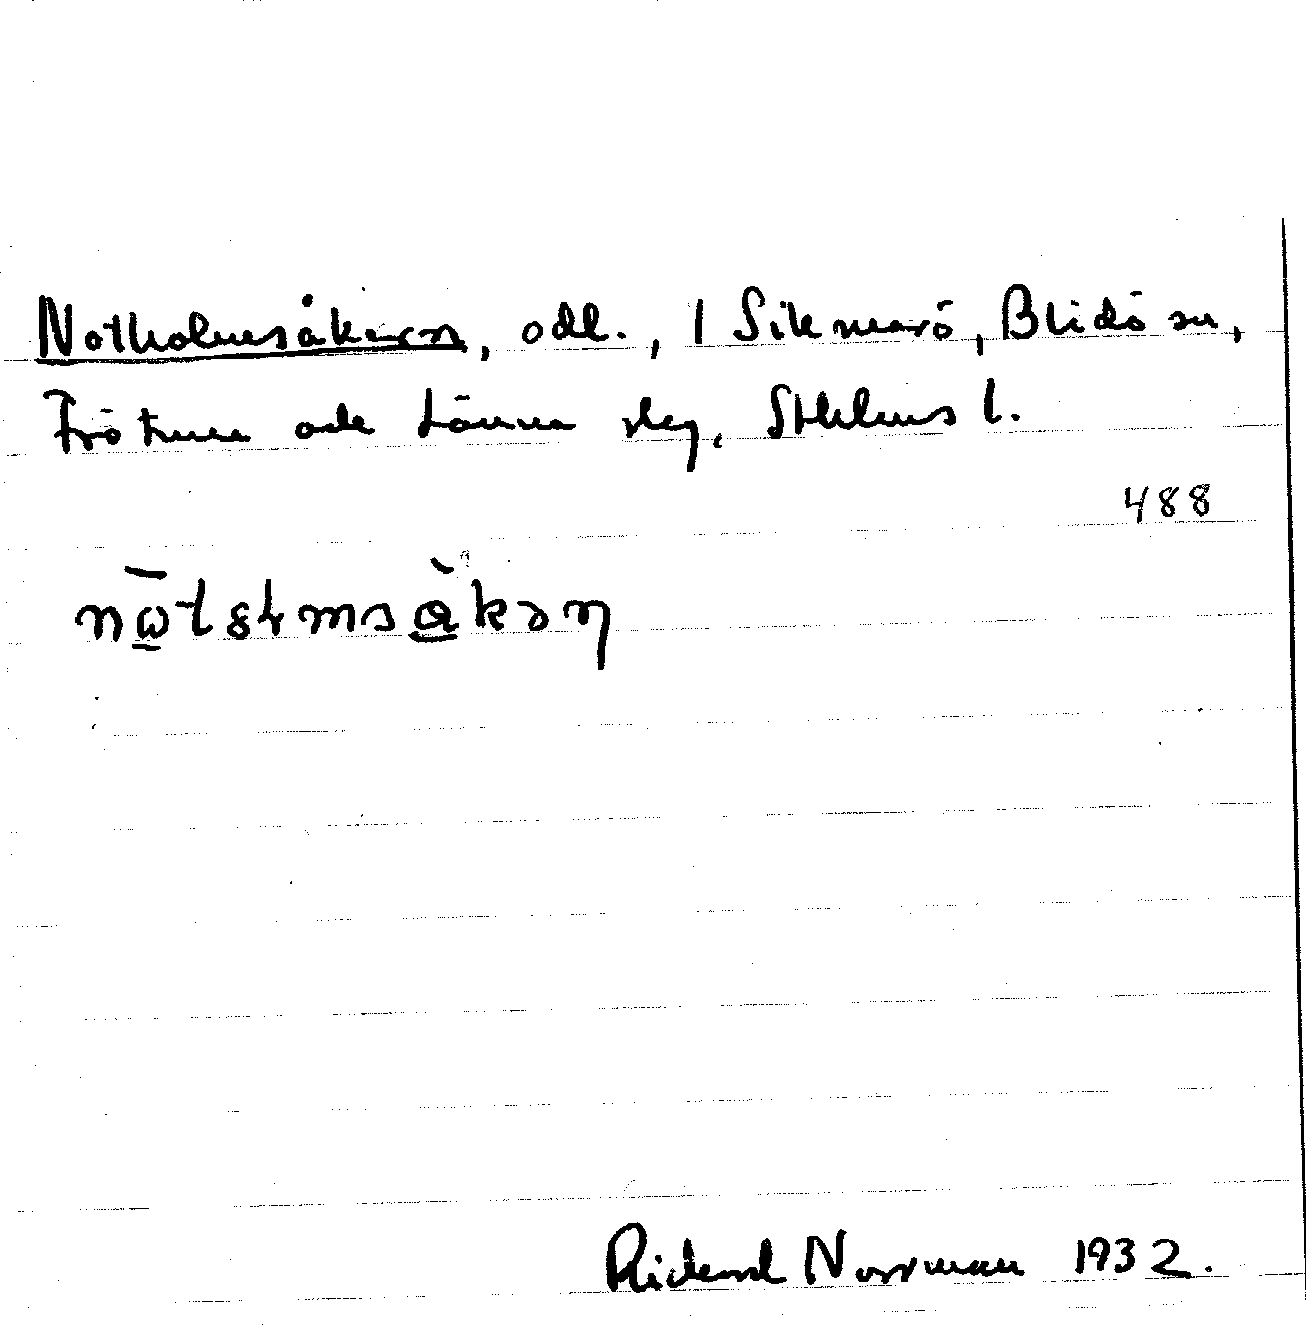 Notholmsåkern, odl., 1 Sikmarö, Blidö sn,
Frötuna och Länna slag, Sthlms l.
488
Rickard Norrman 1932.